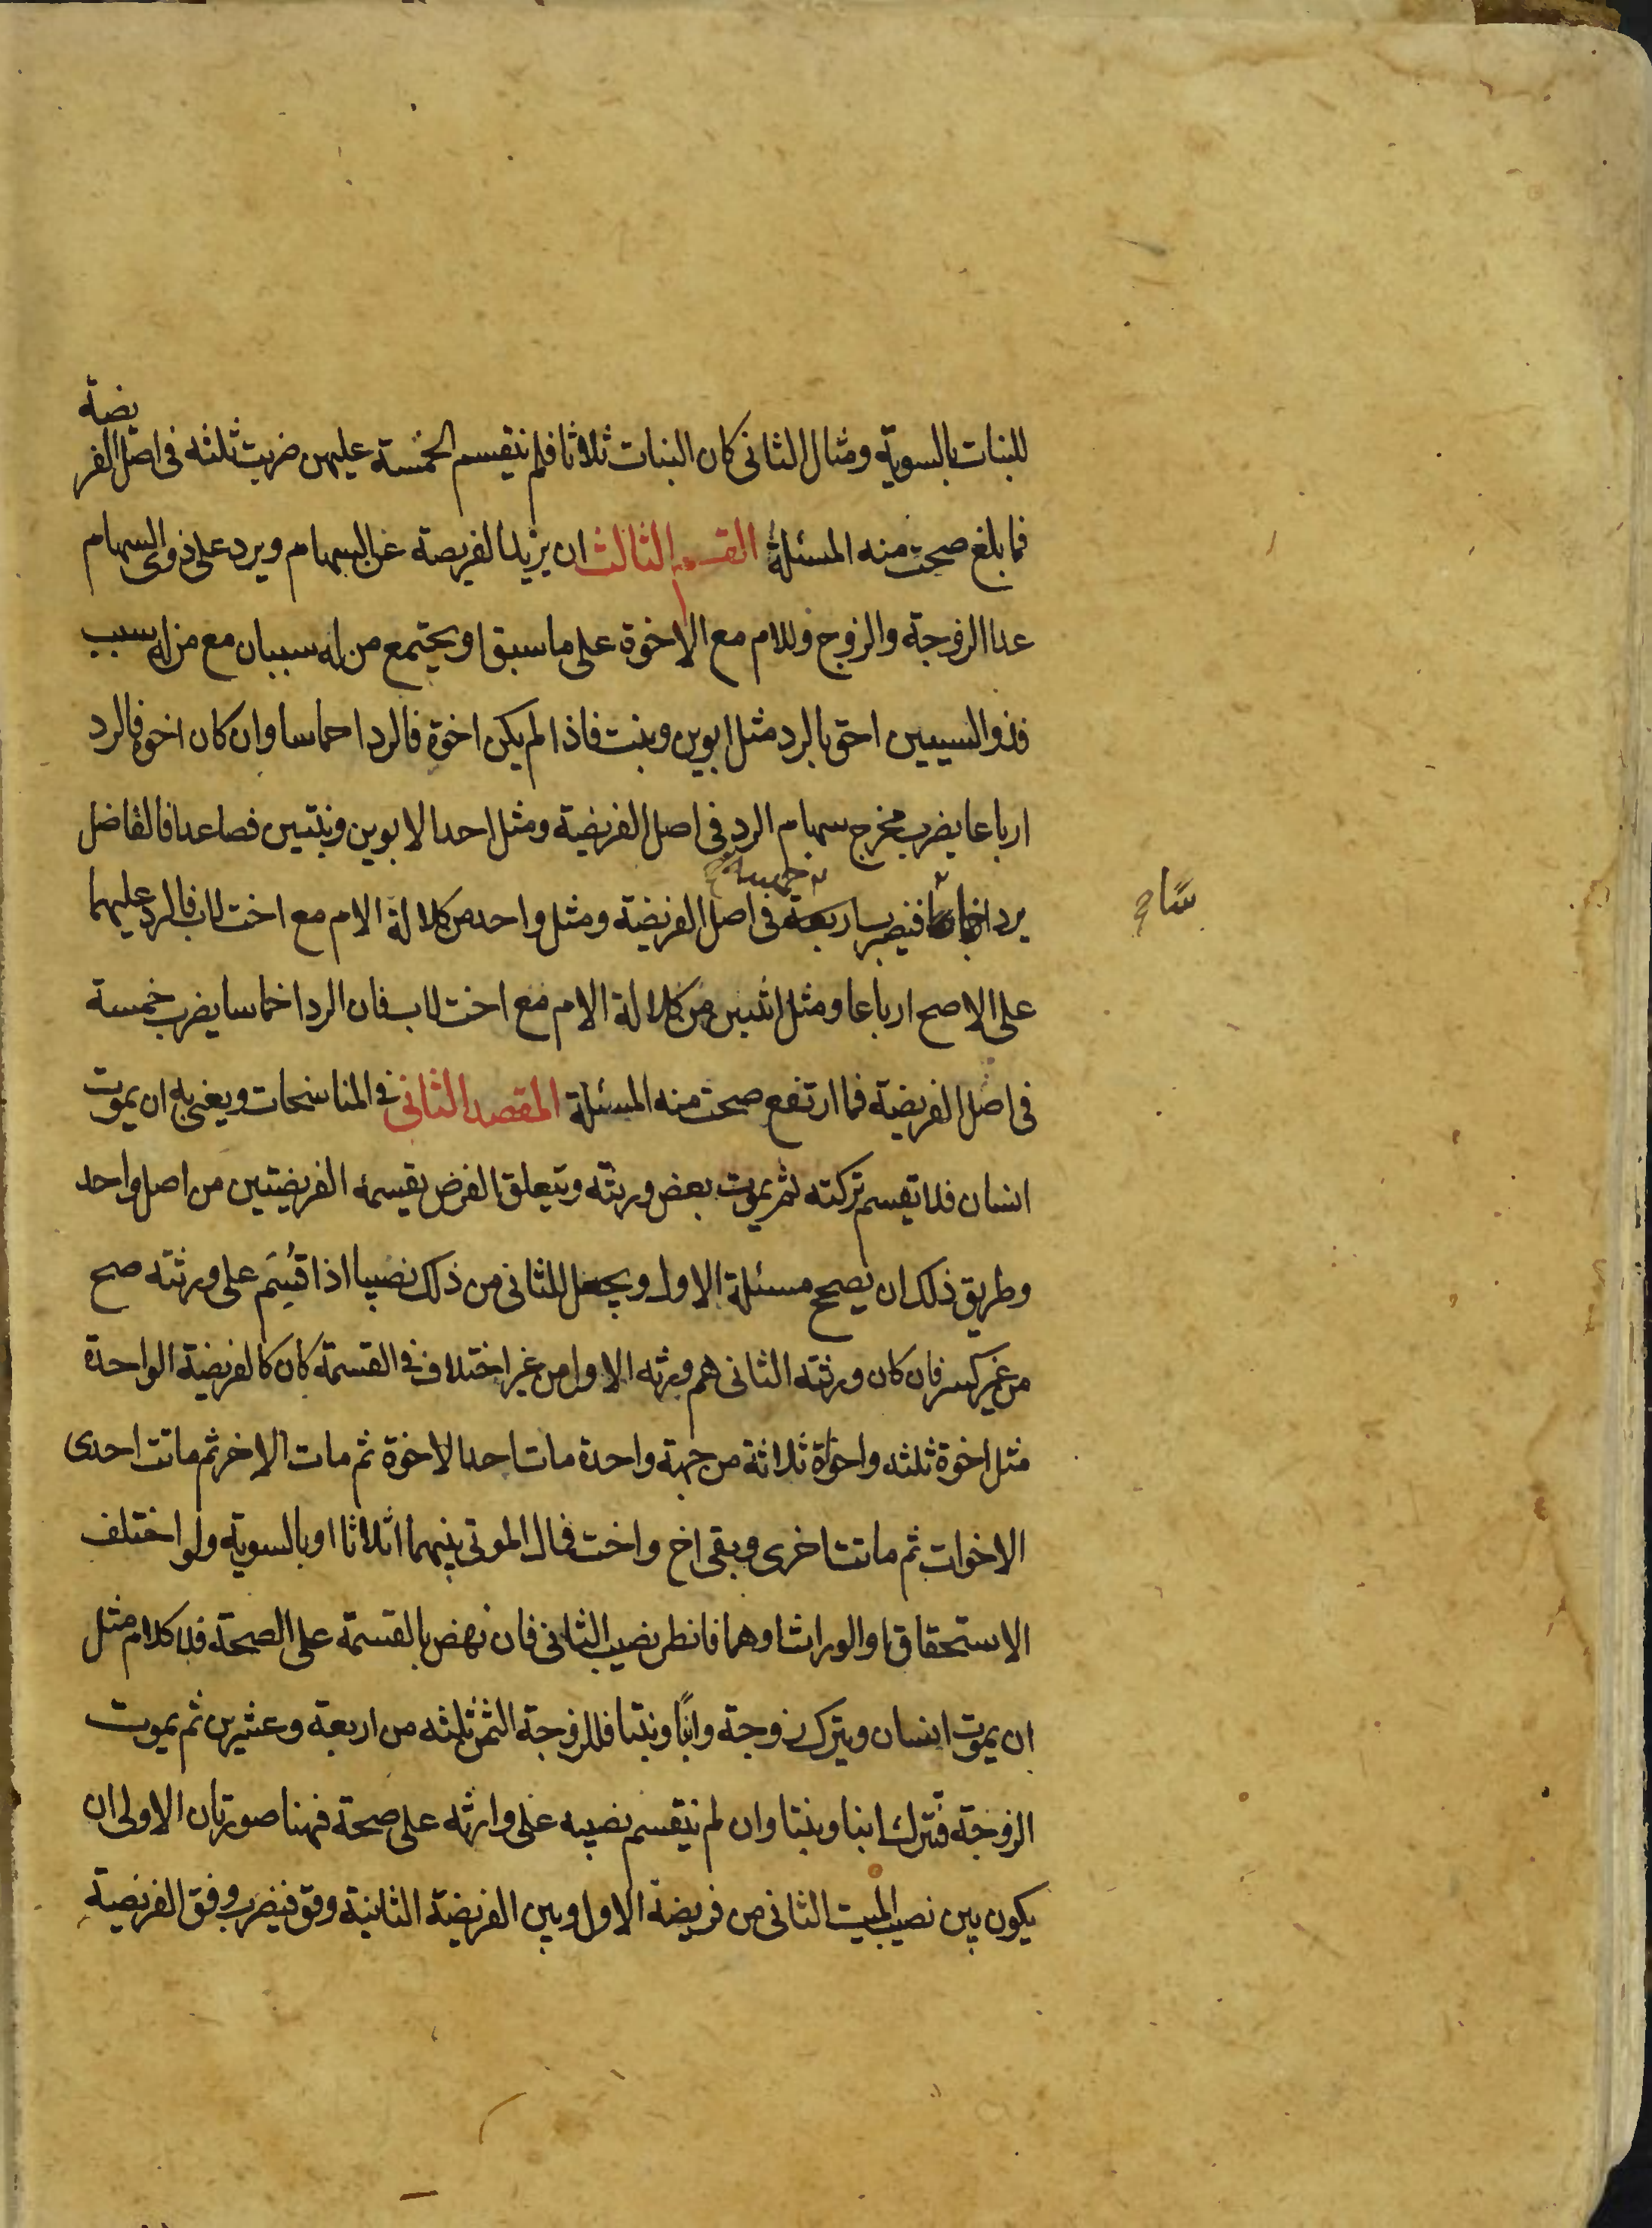 للبنات بالسوية ومثال الثانى كان البنات ثلاثا فلم ينقسم الخمسة عليهن ضربت ثلثه فى اصل الفريضة
فما بلغ صحت منه المسئلة القسم الثالث ان يزيد الفريضة عن السهام ويرد على ذوى السهام
عدا الزوجة والزوج وللام مع الاخوة على ما سبق او يجتمع من له سببان مع من له سبب
فذو السببين احق بالرد مثل ابوين وبنت فاذا لم يكن اخوة فالرد اخماسا وان كان اخوة فالرد
ارباعا يضرب مخرج سهام الرد فى اصل الفريضة ومثل احد الابوين وبنتين فصاعدا فالفاضل
يرد اخماسا فيضرب اربعة فى اصل الفريضة ومثل واحد من كلالة الام مع اخت لاب فالرد عليهما
خمسة
على الاصح ارباعا ومثل اثنين من كلالة الام مع اخت لاب فان الرد اخماسا يضرب خمسة
فى اصل الفريضة فما ارتفع صحت منه المسئلة المقصد الثانى فى المناسخات ويعنى به ان يموت
انسان فلا تقسم تركته ثم يموت بعض ورثته ويتعلق الغرض بقسمة الفريضتين من اصل واحد
وطريق ذلك ان يصحح مسئلة الاول ويجعل للثانى من ذلك نصيبا اذا قُسِم على ورثته صح
من غير كسر فان كان ورثة الثانى هم ورثه الاول من غير اختلاف فى القسمة كان كالفريضة الواحدة
مثل اخوة ثلثه واخوة ثلاثة من جهة واحدة مات احد الاخوة ثم مات الاخر ثم ماتت احدى
الاخوات ثم ماتت اخرى وبقى اخ واخت فمال الموتى بينهما اثلاثا او بالسوية ولو اختلف
الاستحقاق او الوراث او هما فانظر نصيب الثانى فان نهض بالقسمة على الصحة فلا كلام مثل
ان يموت انسان ويترك زوجة وابنًا وبنتا فللزوجة الثمن ثلثه من اربعة وعشرين ثم يموت
الزوجة فتترك ابنا وبنتا وان لم ينقسم نصيبه على وارثه على صحة فهنا صورتان الاولى ان
يكون بين نصيب الميت الثانى من فريضة الاول وبين الفريضة الثانية وفق فيضرب وفق الفريضة